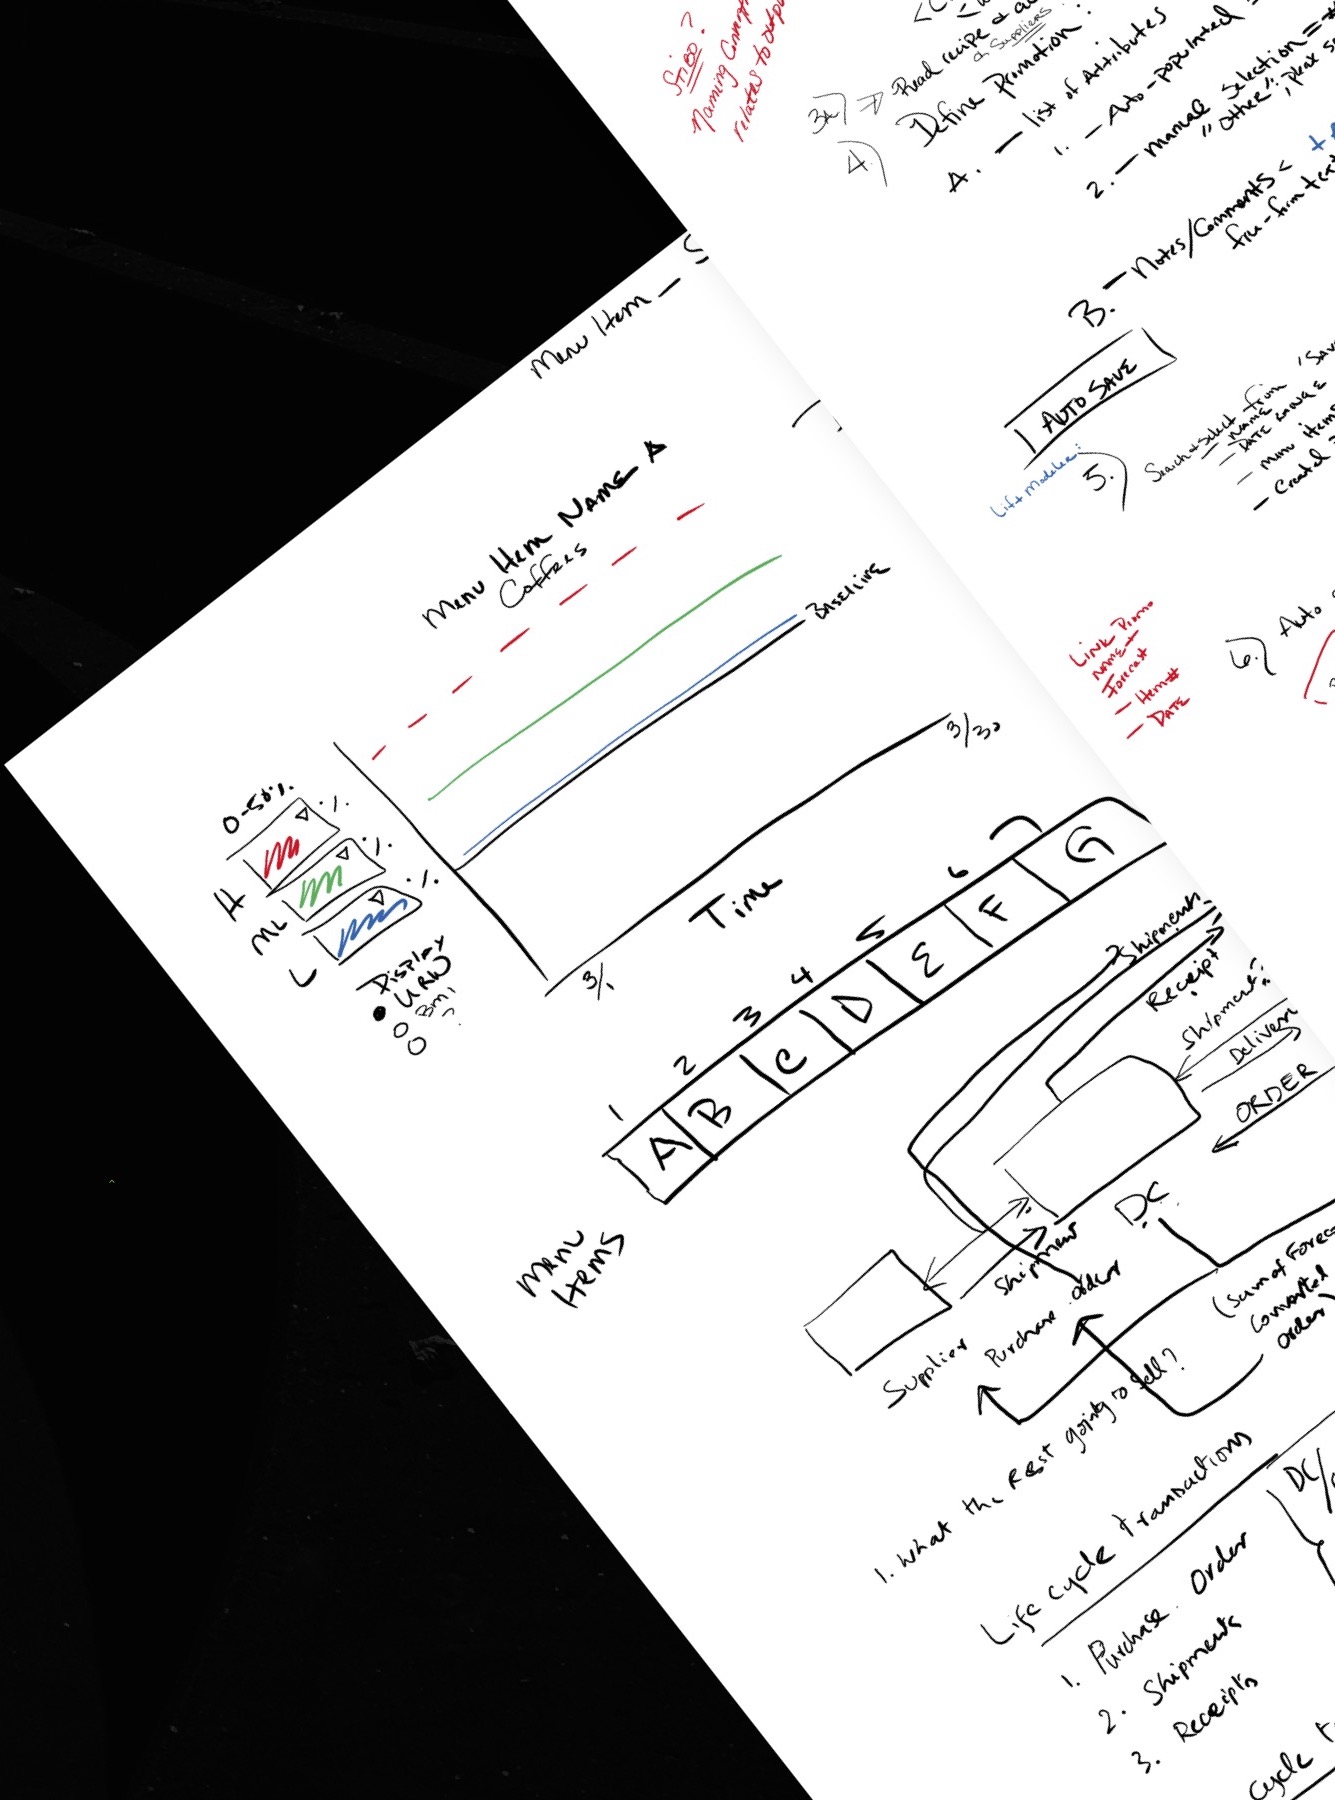 STIBO?
Naming
relates to
3a)
Read recipe &
Suppliers
4.)
Define Promotion:
A. - list of Attributes
1. - Auto-populated
2. - Manual Selection =
"other":, please
B. - Notes/Comments <
AUTO SAVE
Lift Modeler:
5.)
Search & Select from
- NAME
- DATE RANGE
- Menu items
- Created
Link Promo
NAME +
Forecast
- Item #
- DATE
6.)
Auto
Menu Item -
Menu Item NAME A
Coffees
BASELINE
3/30
Time
3/1
0-50%
%
%
%
H
ML
L
Display
URW
1 2 3 4 5 6
A B C D E F G
Menu
Items
Shipment
Receipt
Shipment?
ORDER
DC
Shipment
Supplier
Purchase order
(Sum of Forec
converted
order)
1. What the Rest going to sell?
Life cycle transactions
DC/
1. Purchase Order
2. Shipments
3. Receipts
cycle